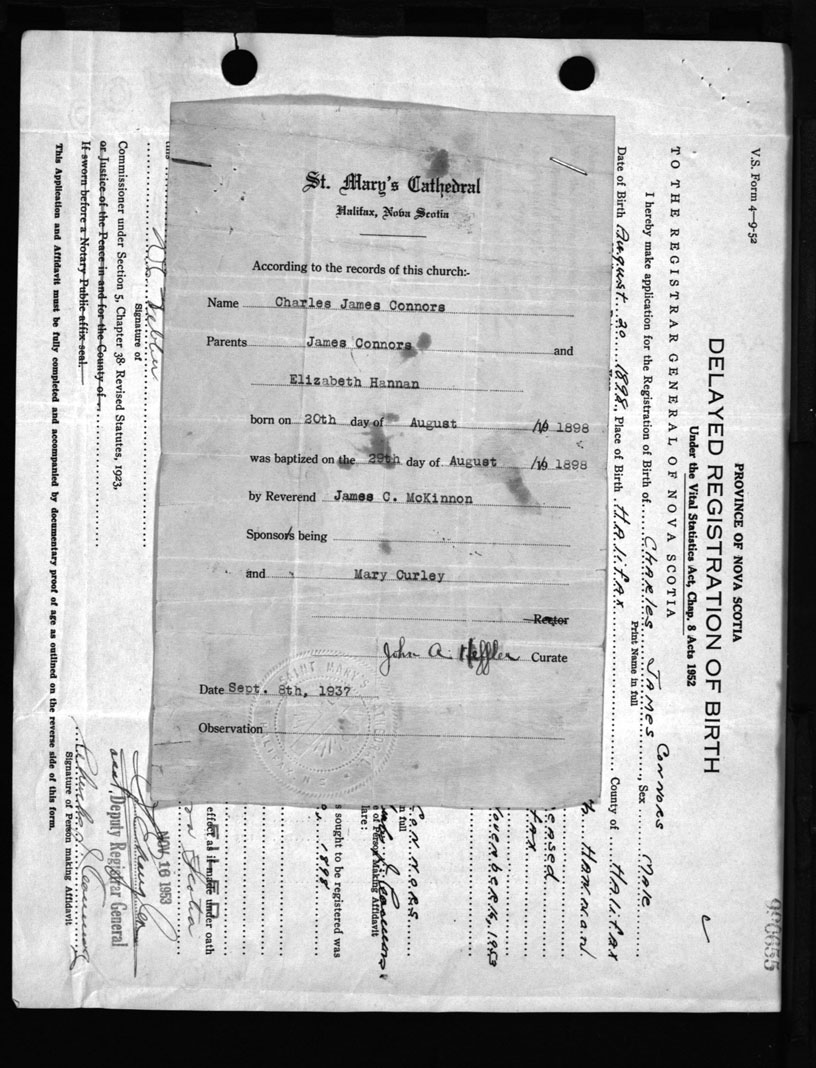 St. Mary's Cathedral
Halifax, Nova Scotia
According to the records of this church:-
Name Charles James Connors
Parents James Connors and
Elizabeth Hannan
born on 20th day of August 1898
was baptized on the 29th day of August 1898
by Reverend James C. McKinnon
Sponsors being
and Mary Curley
Rector
John A. Heffler Curate
Date Sept. 8th, 1937
Observation
V.S. Form 4—9-52
990655
PROVINCE OF NOVA SCOTIA
DELAYED REGISTRATION OF BIRTH
Under the Vital Statistics Act, Chap. 8 Acts 1952
TO THE REGISTRAR GENERAL OF NOVA SCOTIA
I hereby make application for the Registration of Birth of CHARLES JAMES CONNORS, Sex MALE
Print Name in full
Date of Birth August 20 1898, Place of Birth HALIFAX County of HALIFAX
HANNAN
1953
CONNORS
in full
e of Person Making Affidavit
lare:
s sought to be registered was
1898
effect as if made under oath
this
Signature of
Commissioner under Section 5, Chapter 38 Revised Statutes, 1923,
or Justice of the Peace in and for the County of
If sworn before a Notary Public affix seal.
NOV 16 1953
Deputy Registrar General
Charles J Connors
Signature of Person making Affidavit
This Application and Affidavit must be fully completed and accompanied by documentary proof of age as outlined on the reverse side of this form.